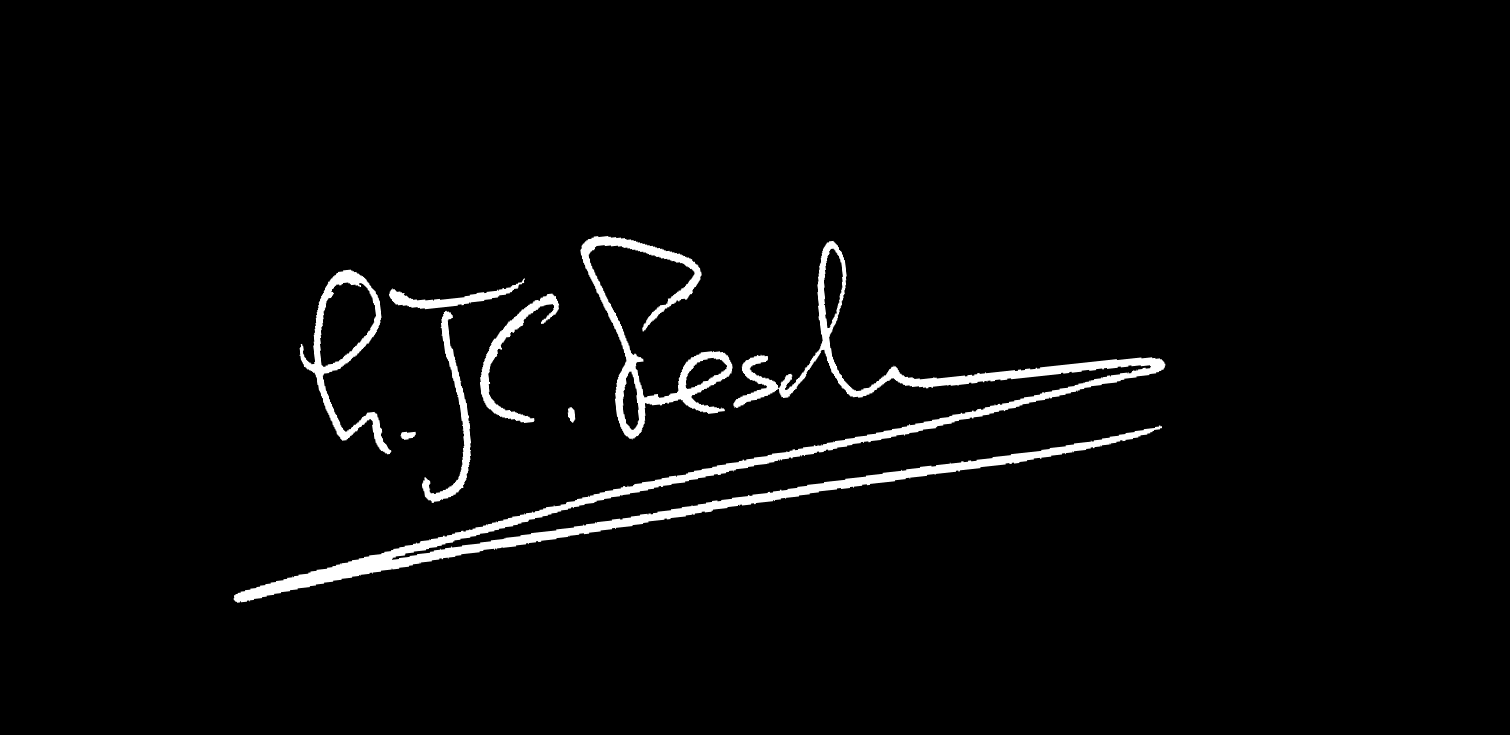 h. J C. Pesch